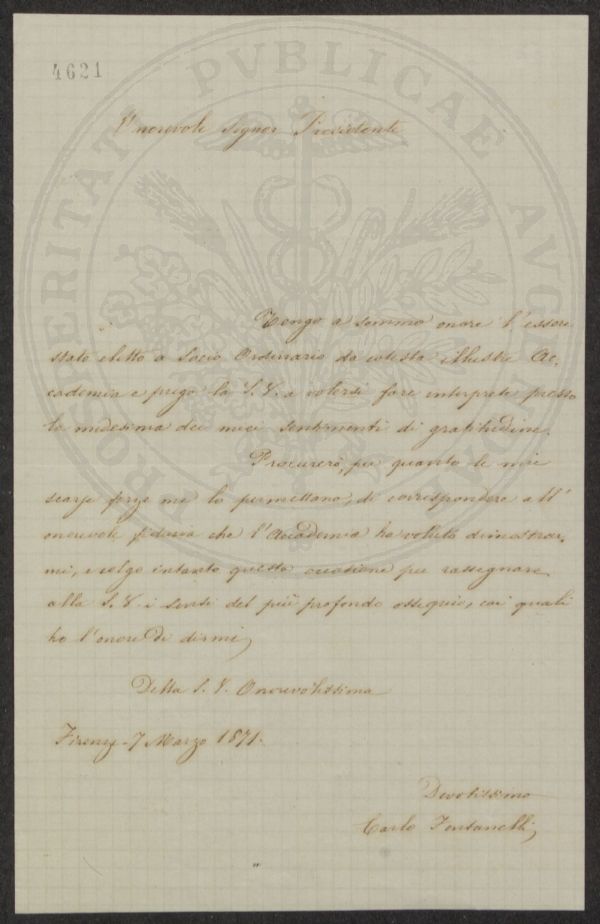 4621
PROSPERITATI PVBLICAE AVGENDAE
Onorevole Signor Presidente
Tengo a sommo onore l'essere
stato eletto a Socio Ordinario da cotesta illustre Ac-
cademia e prego la S. V. a volersi fare interprete presso
la medesima dei miei sentimenti di gratitudine.
Procurerò, per quanto le mie
scarse forze me lo permettano, di corrispondere all'
onorevole fiducia che l'Accademia ha voluto dimostrar-
mi, e colgo intanto questa occasione per rassegnare
alla S. V. i sensi del più profondo ossequio, coi quali
ho l'onore di dirmi,
Della S. V. Onorevolissima
Firenze 7 Marzo 1871.
Devotissimo
Carlo Fontanelli